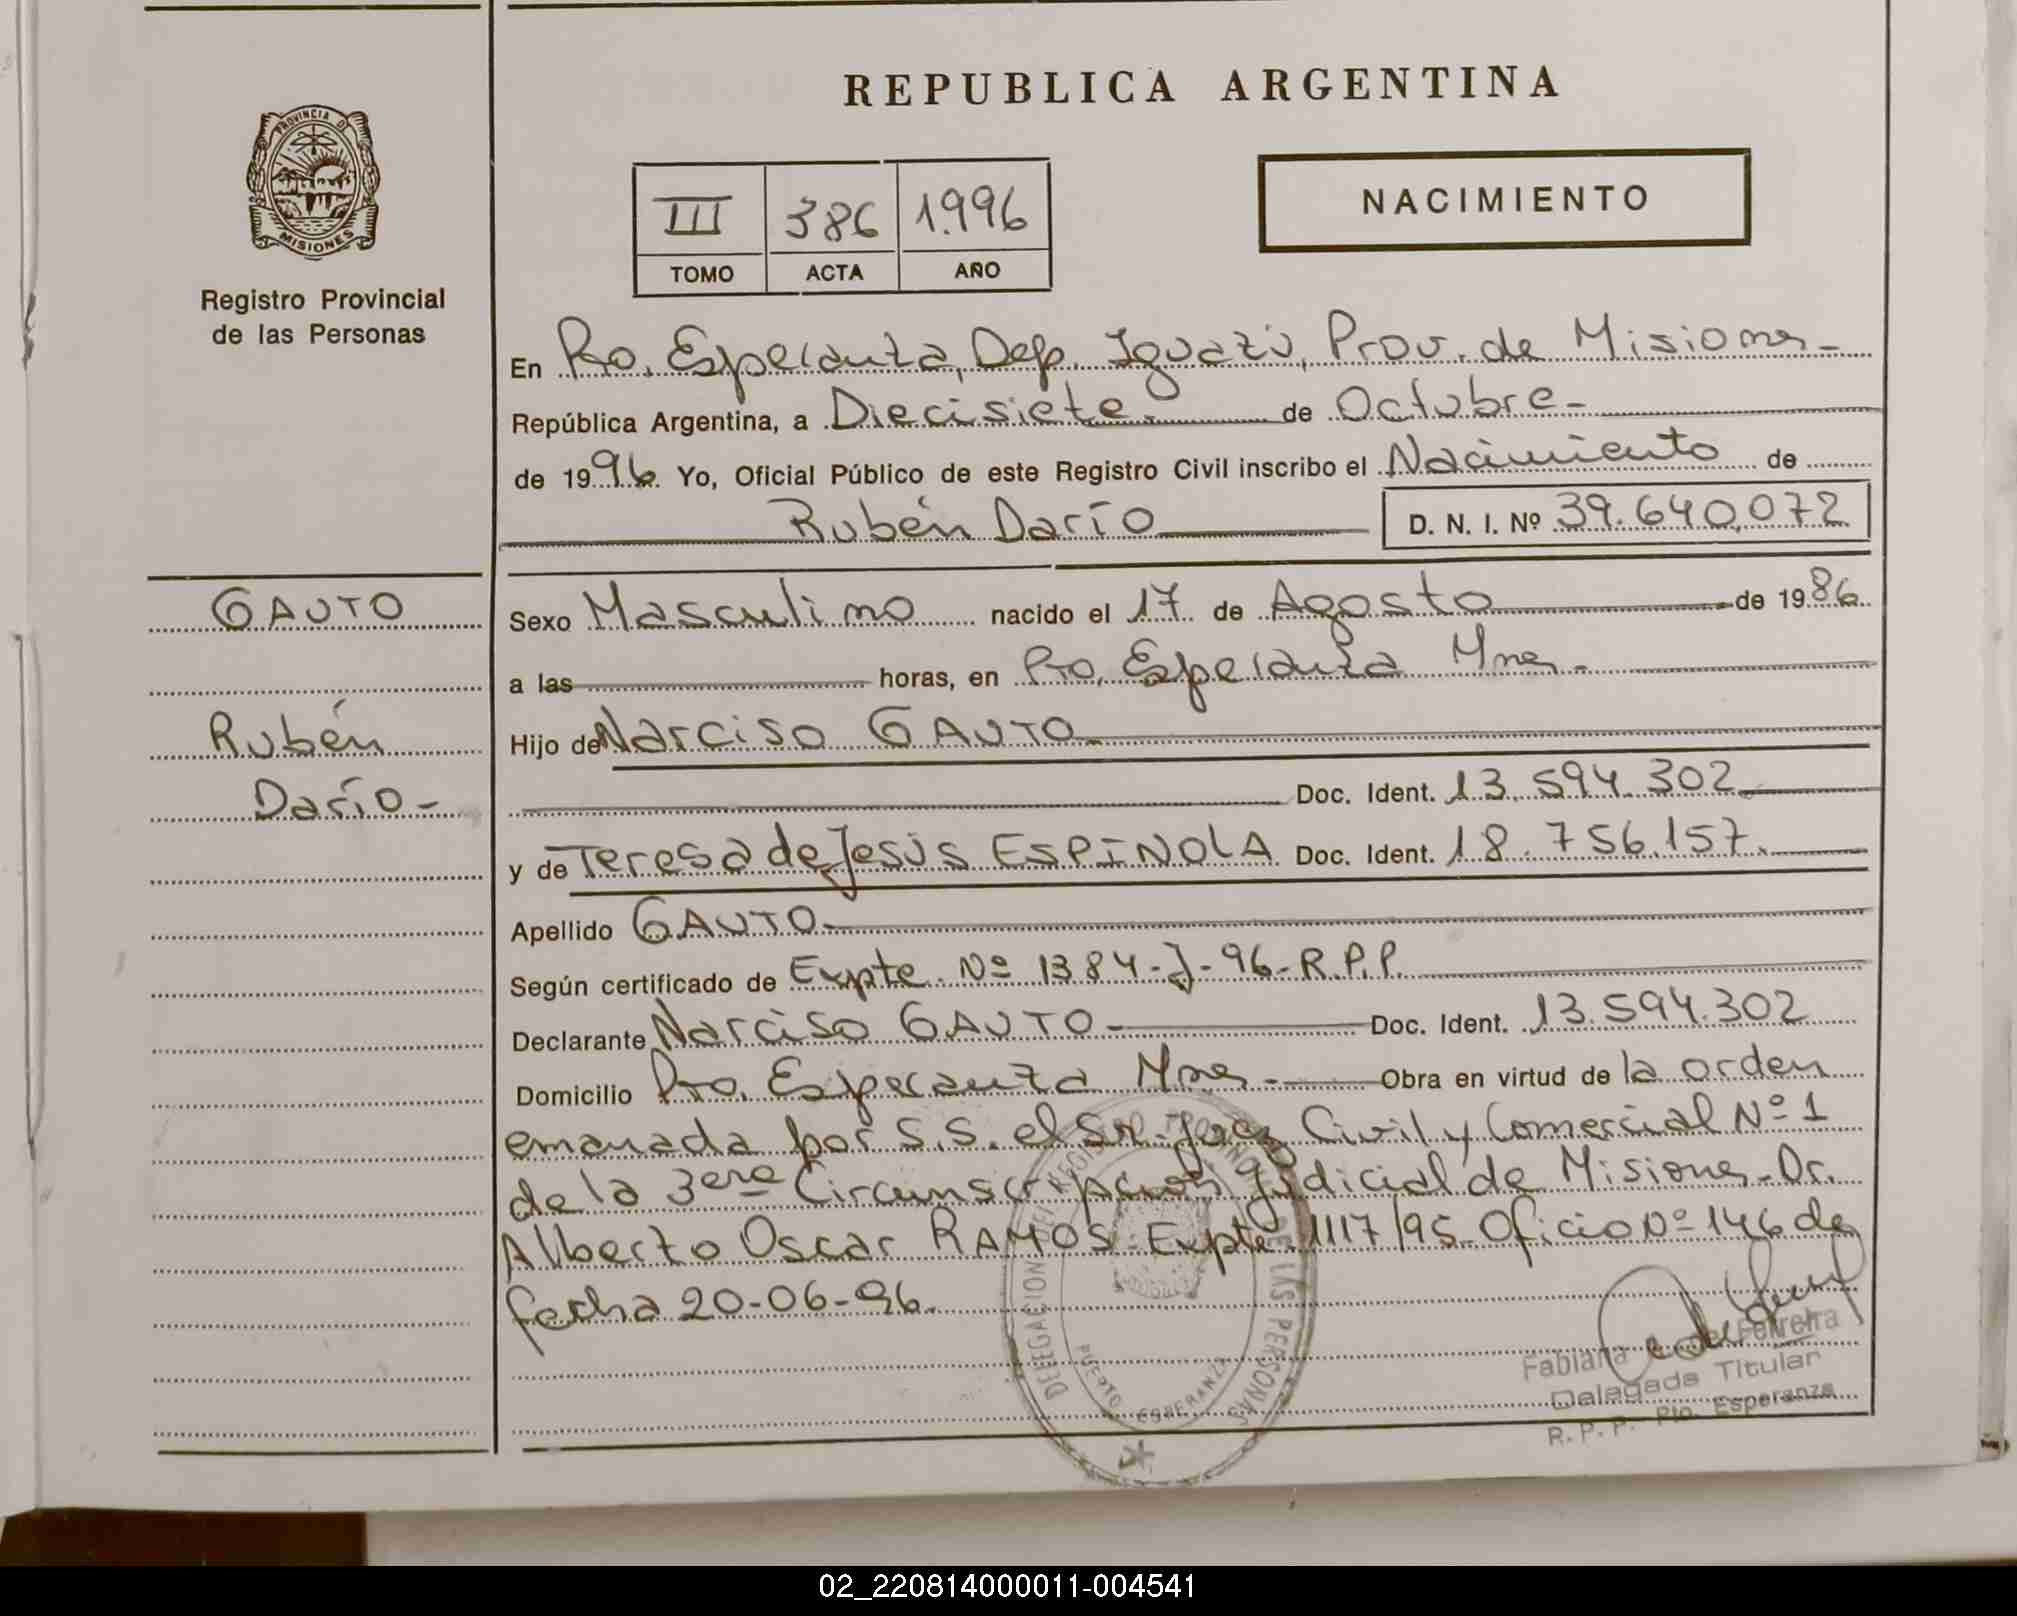 REPUBLICA ARGENTINA
PROVINCIA DE
MISIONES
Registro Provincial
de las Personas
III 386 1.996
TOMO ACTA AÑO
NACIMIENTO
En Pto. Esperanza, Dep. Iguazú, Prov. de Misiones-
República Argentina, a Diecisiete.- de Octubre-
de 1996. Yo, Oficial Público de este Registro Civil inscribo el Nacimiento de
Rubén Darío D. N. I. Nº 39.640.072
GAUTO
Rubén
Darío-
Sexo Masculino nacido el 17 de Agosto de 1986
a las horas, en Pto. Esperanza Mnes-
Hijo de Narciso GAUTO
Doc. Ident. 13.594.302
y de Teresa de Jesús ESPINOLA Doc. Ident. 18.756.157.
Apellido GAUTO
Según certificado de Expte. Nº 1384-J-96-R.P.P.
Declarante Narciso GAUTO- Doc. Ident. 13.594.302
Domicilio Pto. Esperanza Mnes- Obra en virtud de la orden
emanada por S.S. el Sr. Juez Civil y Comercial Nº 1
de la 3era Circunscripción Judicial de Misiones-Dr.
Alberto Oscar RAMOS-Expte. 1117/95-Oficio Nº 146 de
fecha 20-06-96.
PUERTO ESPERANZA
Fabiana Ferreira
Delegada Titular
R. P. P. Pto. Esperanza
02_220814000011-004541